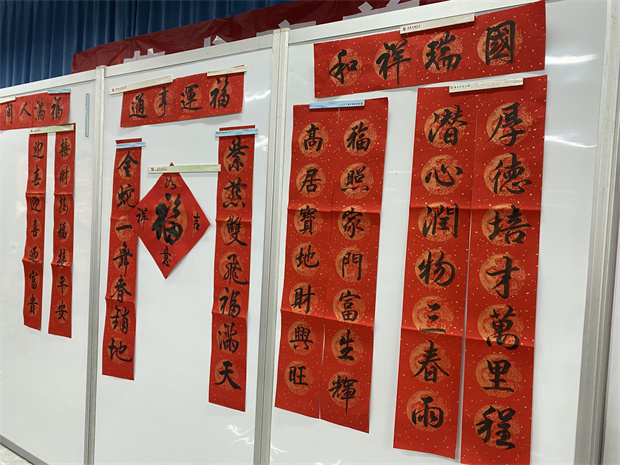 國瑞祥和
厚德培才萬里程
潛心潤物三春雨
福照家門富生輝
高居寶地財興旺
福運事通
紫燕雙飛福滿天
金蛇一舞春鋪地
福
吉祥如意
福滿人間
接財接福接平安
迎春迎喜迎富貴